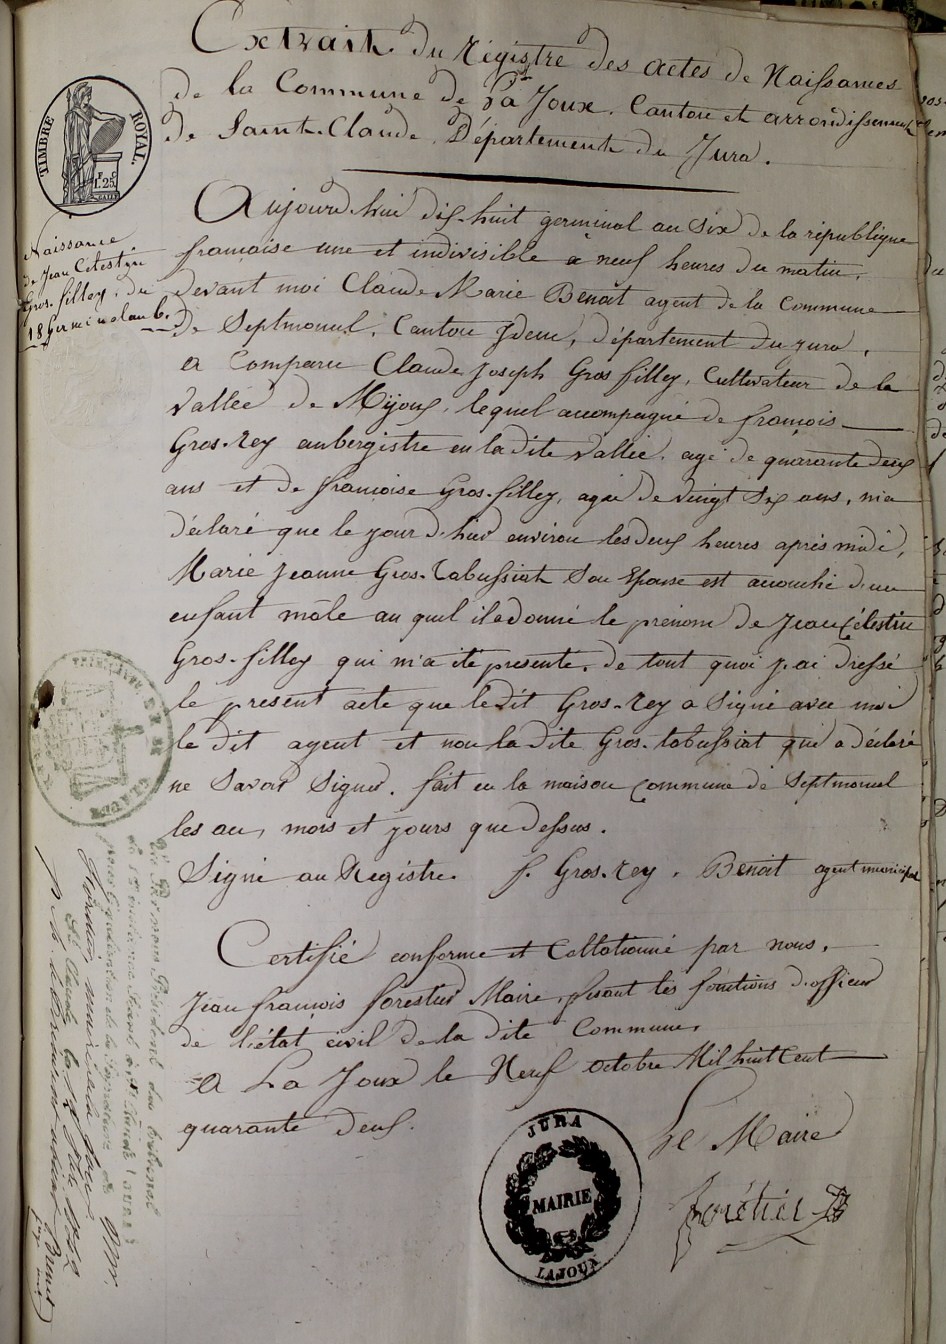 Extrait du Régistre des actes de Naissances
de la Commune de La Joux, Canton et arrondissement
de Saint-Claude, Département du Jura.
TIMBRE ROYAL.
F. C.
1.25
Naissance
de Jean Célestin
Gros-filley, du
18 Germinal an 6.
Aujourd'hui dix-huit germinal an Six de la république
francaise une et indivisible à neuf heures du matin,
devant moi Claude Marie Benoit agent de la Commune
de Septmoncel, Canton Idem, département du jura,
a Comparu Claude Joseph Gros filley, Cultivateur de la
Vallée de Mijoux, lequel accompagné de françois
Gros-rey aubergistre en la dite Vallée, agé de quarante deux
ans et de françoise Gros-filley, agée de vingt Six ans, m'a
déclaré que le jour d'hier environ les deux heures après midi,
Marie Jeanne Gros-Tabussiat Son Epouse est accouché d'un
enfant mâle au quel il a donné le prénom de Jean Célestin
Gros-filley qui m'a été présenté. de tout quoi j'ai dressé
le présent acte que le dit Gros-rey a Signé avec moi
le dit agent et non la dite Gros-tabussiat qui a déclaré
ne Savoir Signer. fait en la maison Commune de Septmoncel
les an, mois et jours que dessus.
Signé au Registre. f. Gros-rey, Benoit agent municipal
Certifié conforme et Collationné par nous,
Jean françois forestier Maire, faisant les fonctions d'officier
de l'état civil de la dite Commune,
A La Joux le Neuf octobre Mil huit Cent
quarante deux.
Le Maire
forétier
JURA
MAIRIE
LAJOUX
président du tribunal
St Claude le 12